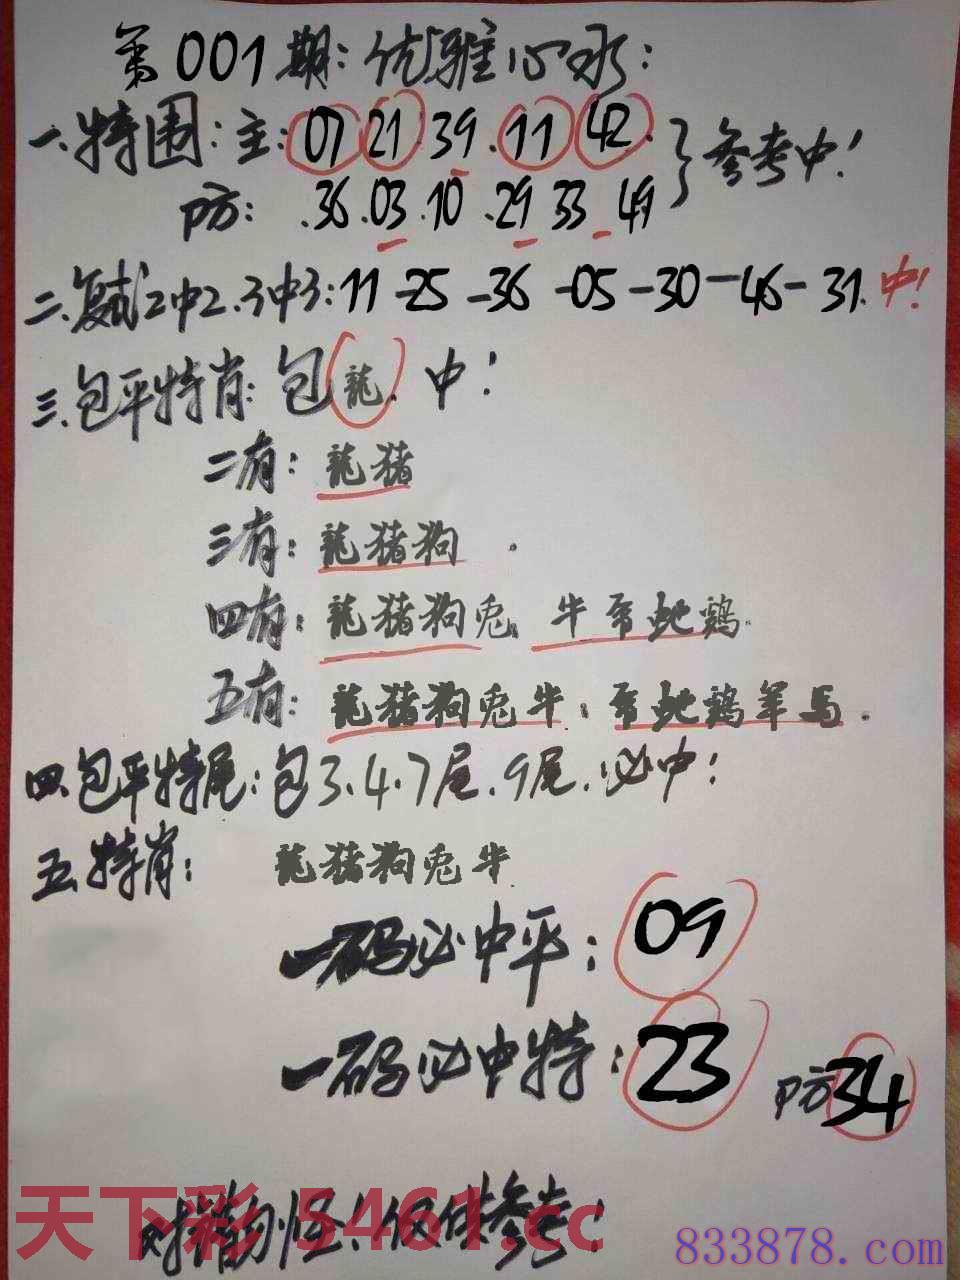 第001期:优雅心水:
一.特围:主:07 21 39.11 42.
参考中!
防:.36.03.10.29 33 49
二.复试2中2.3中3:11-25-36-05-30-46-31.中!
三.包平特肖:包龍.中!
二有:龍猪
三有:龍猪狗.
四有:龍猪狗兎.牛虎蛇鷄.
五有:龍猪狗兎牛:虎蛇鷄羊马.
四.包平特尾:包3.4.7尾.9尾.必中!
五.特肖:龍猪狗兎牛.
一码必中平:09
一码必中特:23 防34
天下彩 5461.cc
对措勿怪!仅供参考!
833878.com